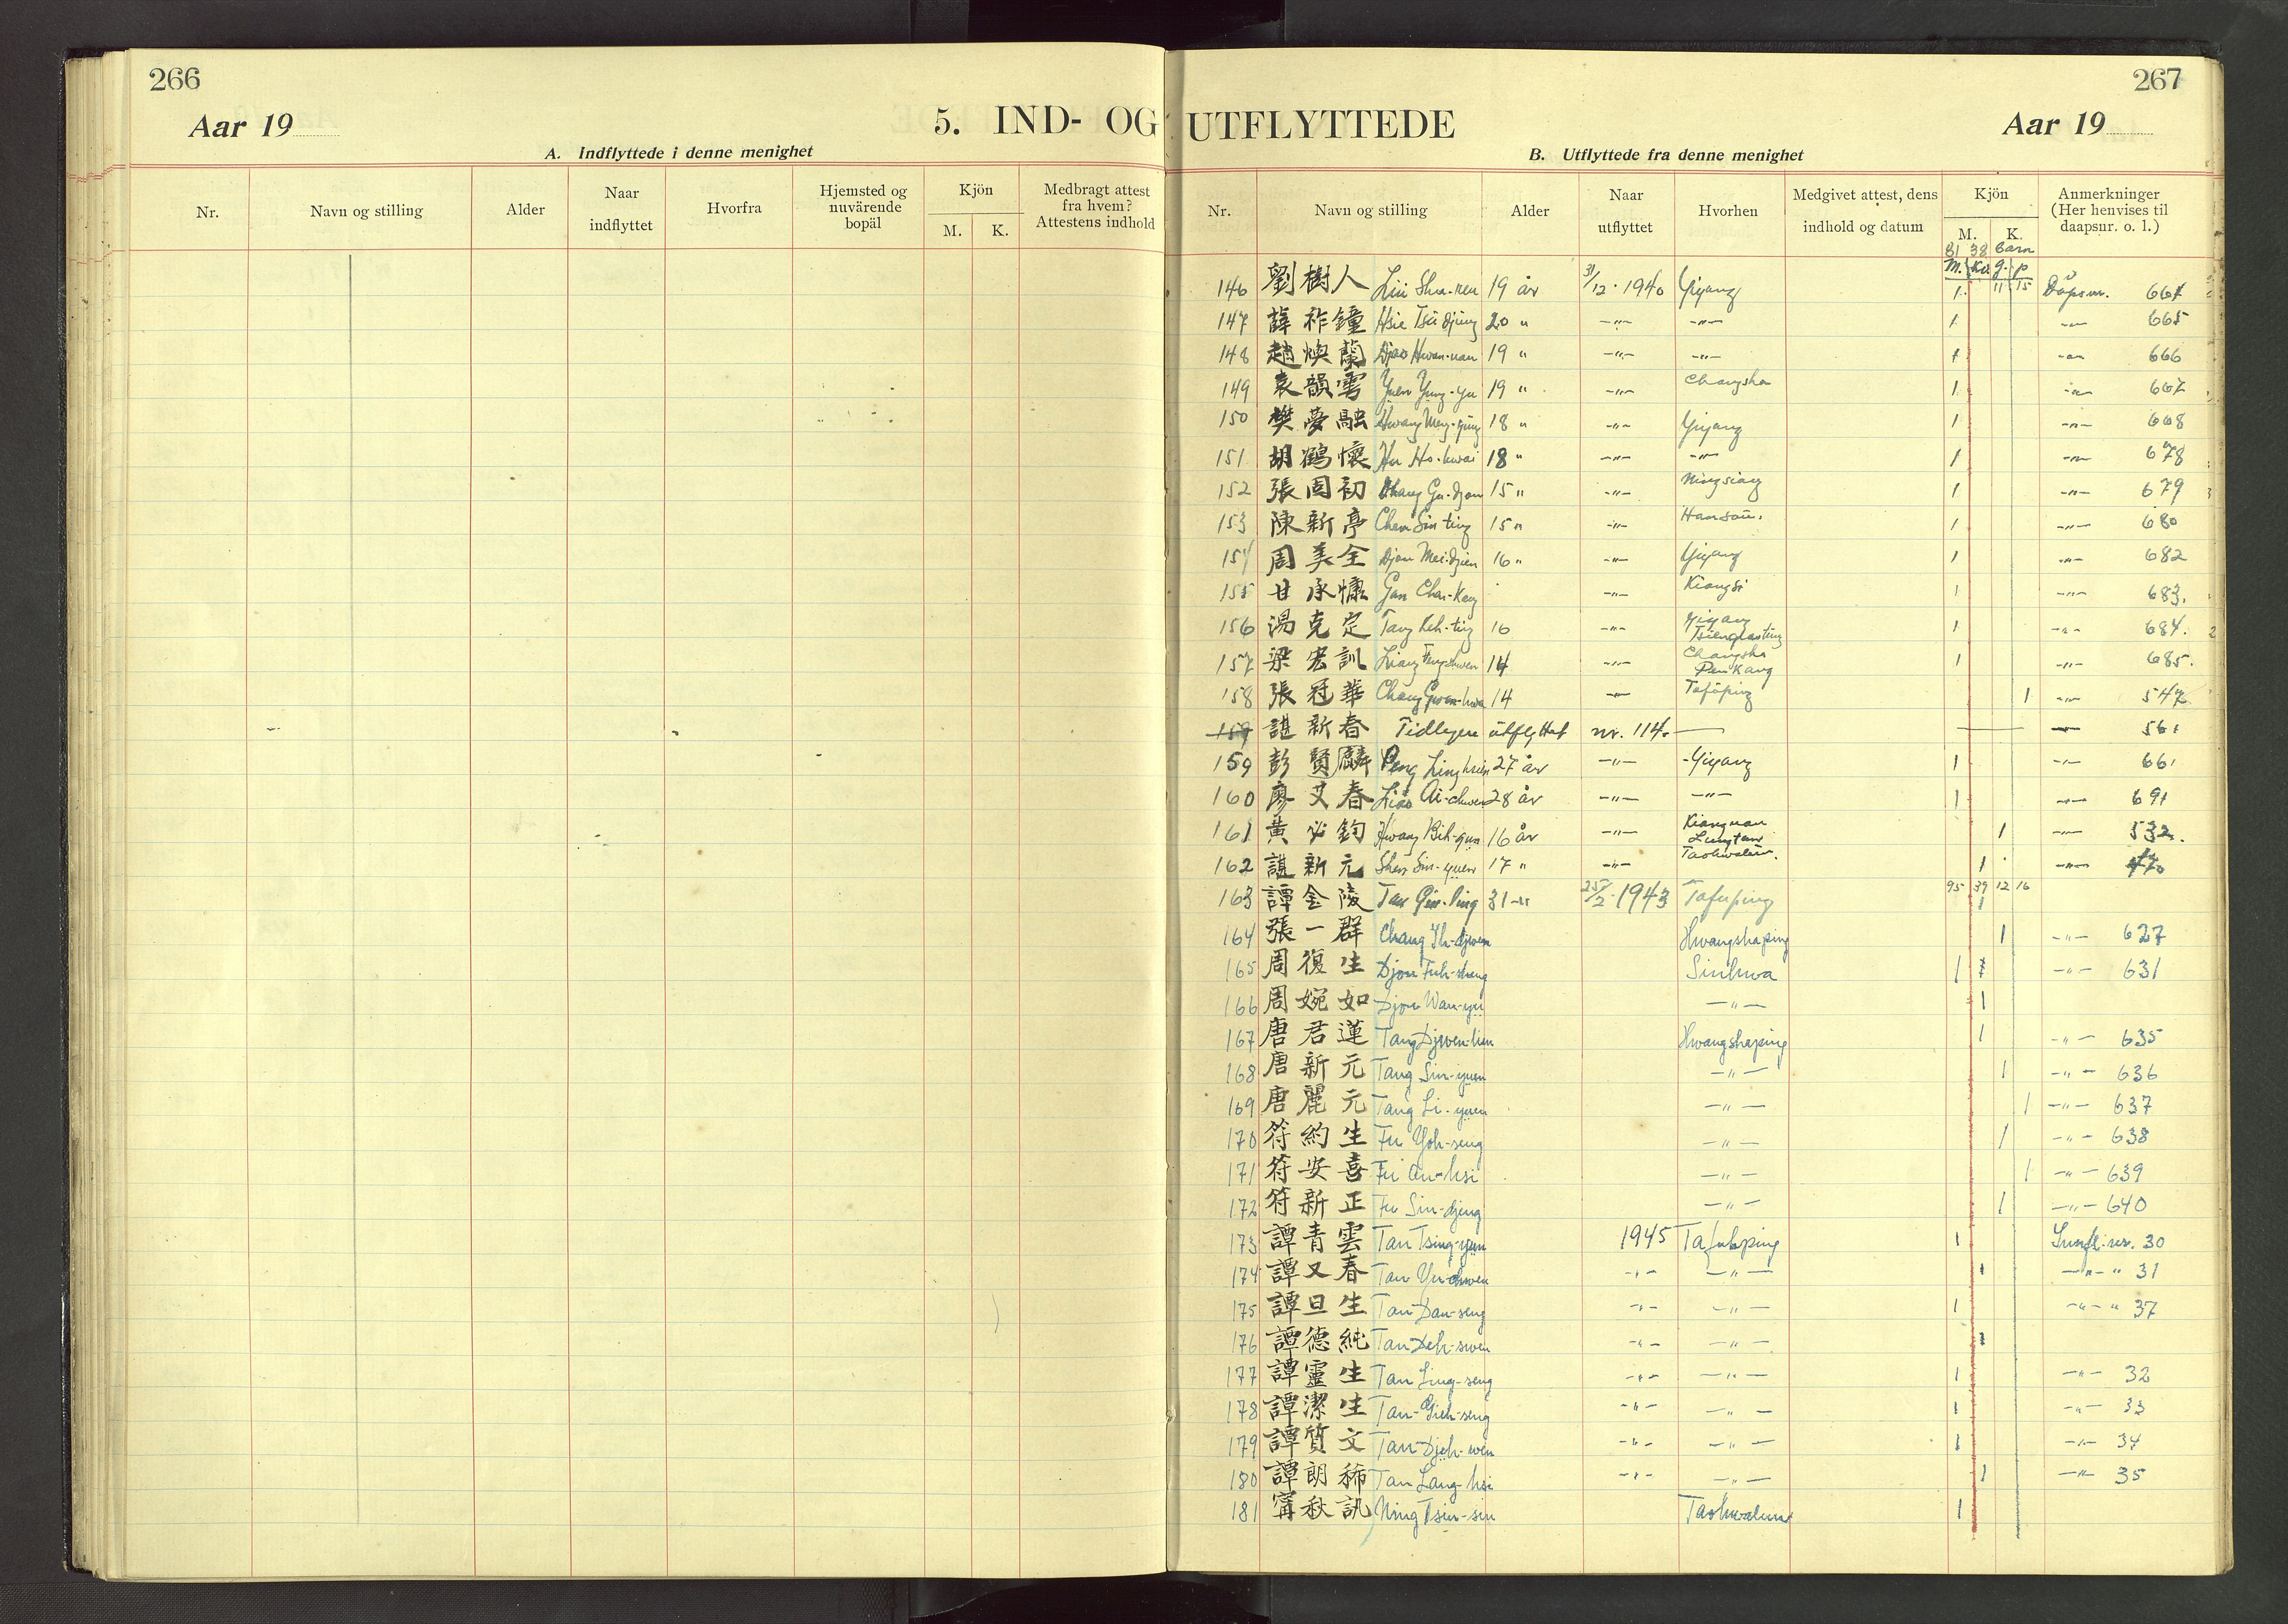 266
Aar 19
5. IND- OG
A. Indflyttede i denne menighet
Nr.
Navn og stilling
Alder
Naar indflyttet
Hvorfra
Hjemsted og nuværende bopäl
Kjön
M. K.
Medbragt attest fra hvem? Attestens indhold
267
UTFLYTTEDE
Aar 19
B. Utflyttede fra denne menighet
Nr.
Navn og stilling
Alder
Naar utflyttet
Hvorhen
Medgivet attest, dens indhold og datum
Kjön
M. K.
Anmerkninger (Her henvises til daapsnr. o. l.)
81 38 Barn
M. Kv. g. p
11 15
146 劉樹人 Liu Shu-ren 19 år 31/12 · 1940 Yiyang 1 Dåpsnr. 664
147 薛祚鐘 Hsie Tsü djung 20 " -"- -"- 1 -"- 665
148 趙煥蘭 Djao Hwan-nan 19 " -"- -"- 1 -"- 666
149 袁韻雩 Yuen Yung-yu 19 " -"- Changsha 1 -"- 667
150 樊夢融 Hwang Meng-yung 18 " -"- Yiyang 1 -"- 668
151 胡鶴懷 Hu Ho-hwai 18 " -"- -"- 1 -"- 678
152 張固初 Chang Gu- 15 " -"- Ningsiang 1 -"- 679
153 陳新亭 Chen Sin ting 15 " -"- Hansou. 1 -"- 680
154 周美全 Djou Mei-djien 16 " -"- Yiyang 1 -"- 682
155 甘承慷 Gan Chen-Kang -"- Kiangsi 1 -"- 683.
156 湯克定 Tang Keh-ting 16 -"- Yiyang 1 -"- 684.
157 梁宏訓 Liang 14 -"- Changsha 1 -"- 685.
158 張冠華 Chang Gwan-hwa 14 -"- Tafuping 1 -"- 547
159 諶新春 Tidligere utflyttet nr. 114. 561
159 彭賢麟 Peng Ling hsien 27 år -"- -Yiyang 1 -"- 661
160 廖艾春 Liao Ai-chwen 28 år -"- -"- 1 -"- 691
161 黃必鈞 Hwang Bih-gun 16 år -"- Kiangnan 1 -"- 532.
162 諶新元 Shen Sin-yuen 17 " -"- Taohwalun. 1 -"-
95 39 12 16
163 譚金陵 Tan Gin-ling 31 -"- 25/2 · 1943 Tafuping 1
164 張一群 Chang Yh-djwen Hwangshaping 1 -"- 627
165 周復生 Djou Fuh-sheng Sinhwa 1 -"- 631
166 周婉如 Djou Wan-yu -"- 1
167 唐君蓮 Tang Djwen-lien Hwangshaping 1 -"- 635
168 唐新元 Tang Sin-yuen -"- 1 -"- 636
169 唐麗元 Tang Li-yuen -"- 1 -"- 637
170 符約生 Fu Yoh-seng -"- 1 -"- 638
171 符安喜 Fu An-hsi -"- 1 -"- 639
172 符新正 Fu Sin-djeng -"- 1 -"- 640
173 譚青雲 Tan Tsing-yun 1945 Tafuhping 1 Innfl. nr. 30
174 譚又春 Tan Yu-chwen -"- -"- 1 -"- " 31
175 譚旦生 Tan Dan-seng -"- -"- 1 -"- " 37
176 譚德純 Tan Deh-swen -"- -"- 1
177 譚靈生 Tan Ling-seng -"- -"- 1 -"- 32
178 譚潔生 Tan-Gieh-seng -"- -"- 1 -"- 33
179 譚質文 Tan-Djeh-wen -"- -"- 1 -"- 34
180 譚朗稀 Tan Lang-hsi -"- -"- 1 -"- 35
181 甯秋訊 Ning Tsiu-sin Taohwalun 1